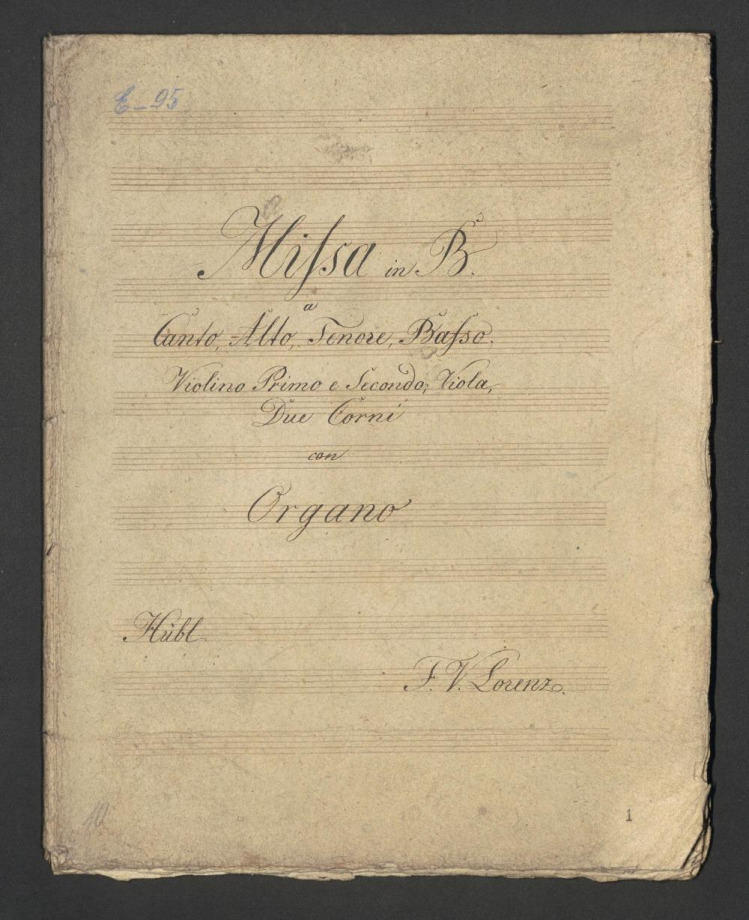 E-95
Missa in B.
a
Canto, Alto, Tenore, Basso.
Violino Primo e Secondo, Viola,
Due Corni
con
Organo
Hübl
F. V. Lorenz.
10
1